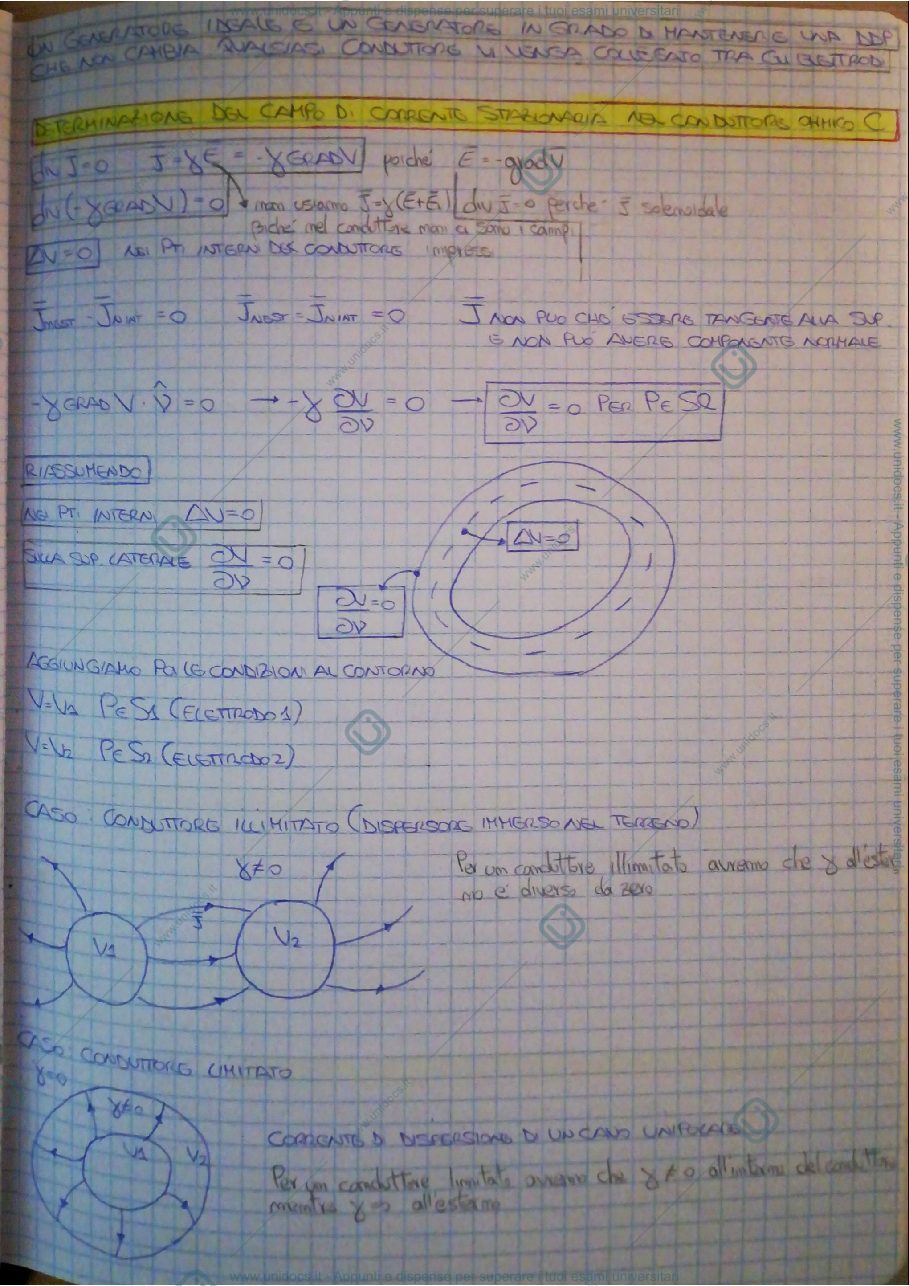 www.unidocs.it - Appunti e dispense per superare i tuoi esami universitari
UN GENERATORE IDEALE E' UN GENERATORE IN GRADO DI MANTENERE UNA DDP
CHE NON CAMBIA QUALSIASI CONDUTTORE VI VENGA COLLEGATO TRA GLI ELETTRODI
DETERMINAZIONE DEL CAMPO DI CORRENTE STAZIONARIA NEL CONDUTTORE OHMICO C
div J̄=0 J̄=γĒ = -γ GRAD V poiché Ē=-grad V
div(-γ GRAD V)=0 non usiamo J̄=γ(Ē+Ēi) div J̄=0 perché J̄ solenoidale
poiché nel conduttore non ci sono i campi
ΔV=0 NEI PTI INTERNI DEL CONDUTTORE impressi
J̄NEST - J̄NINT = 0 J̄NEST = J̄NINT = 0 J̄ NON PUÒ CHE ESSERE TANGENTE ALLA SUP.
E NON PUÒ AVERE COMPONENTE NORMALE
-γ GRAD V · ν̂ = 0 → -γ ∂V/∂ν = 0 → ∂V/∂ν = 0 PER P∈SL
RIASSUMENDO
NEI PTI INTERNI ΔV=0
ΔV=0
SULLA SUP. LATERALE ∂V/∂ν = 0
∂V/∂ν = 0
AGGIUNGIAMO POI LE CONDIZIONI AL CONTORNO
V=V1 P∈S1 (ELETTRODO 1)
V=V2 P∈S2 (ELETTRODO 2)
CASO CONDUTTORE ILLIMITATO (DISPERSORE IMMERSO NEL TERRENO)
γ≠0 Per un conduttore illimitato avremo che γ all'ester
no è diverso da zero
J̄
V1 V2
CASO CONDUTTORE LIMITATO
γ=0
γ≠0
V1 V2
CORRENTE DI DISPERSIONE DI UN CAVO UNIPOLARE
Per un conduttore limitato avremo che γ≠0 all'interno del conduttore
mentre γ=0 all'esterno
www.unidocs.it - Appunti e dispense per superare i tuoi esami universitari